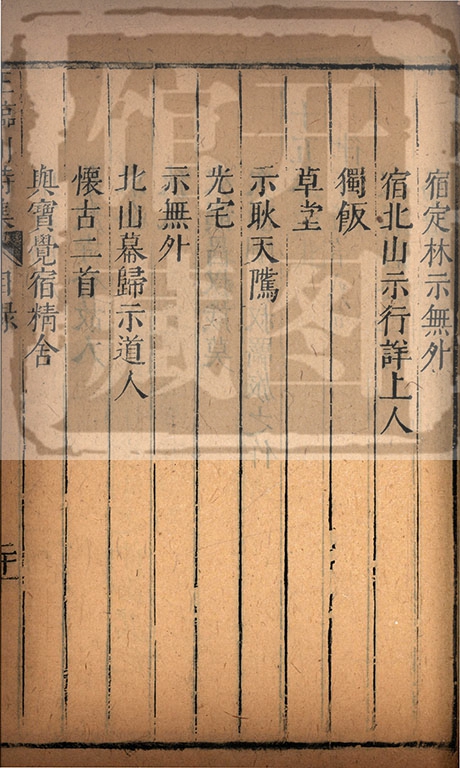 宿定林示無外
宿北山示行詳上人
獨飯
草堂
示耿天隲
光宅
示無外
北山暮歸示道人
懷古二首
與寶覺宿精舍
王臨川詩集 目錄